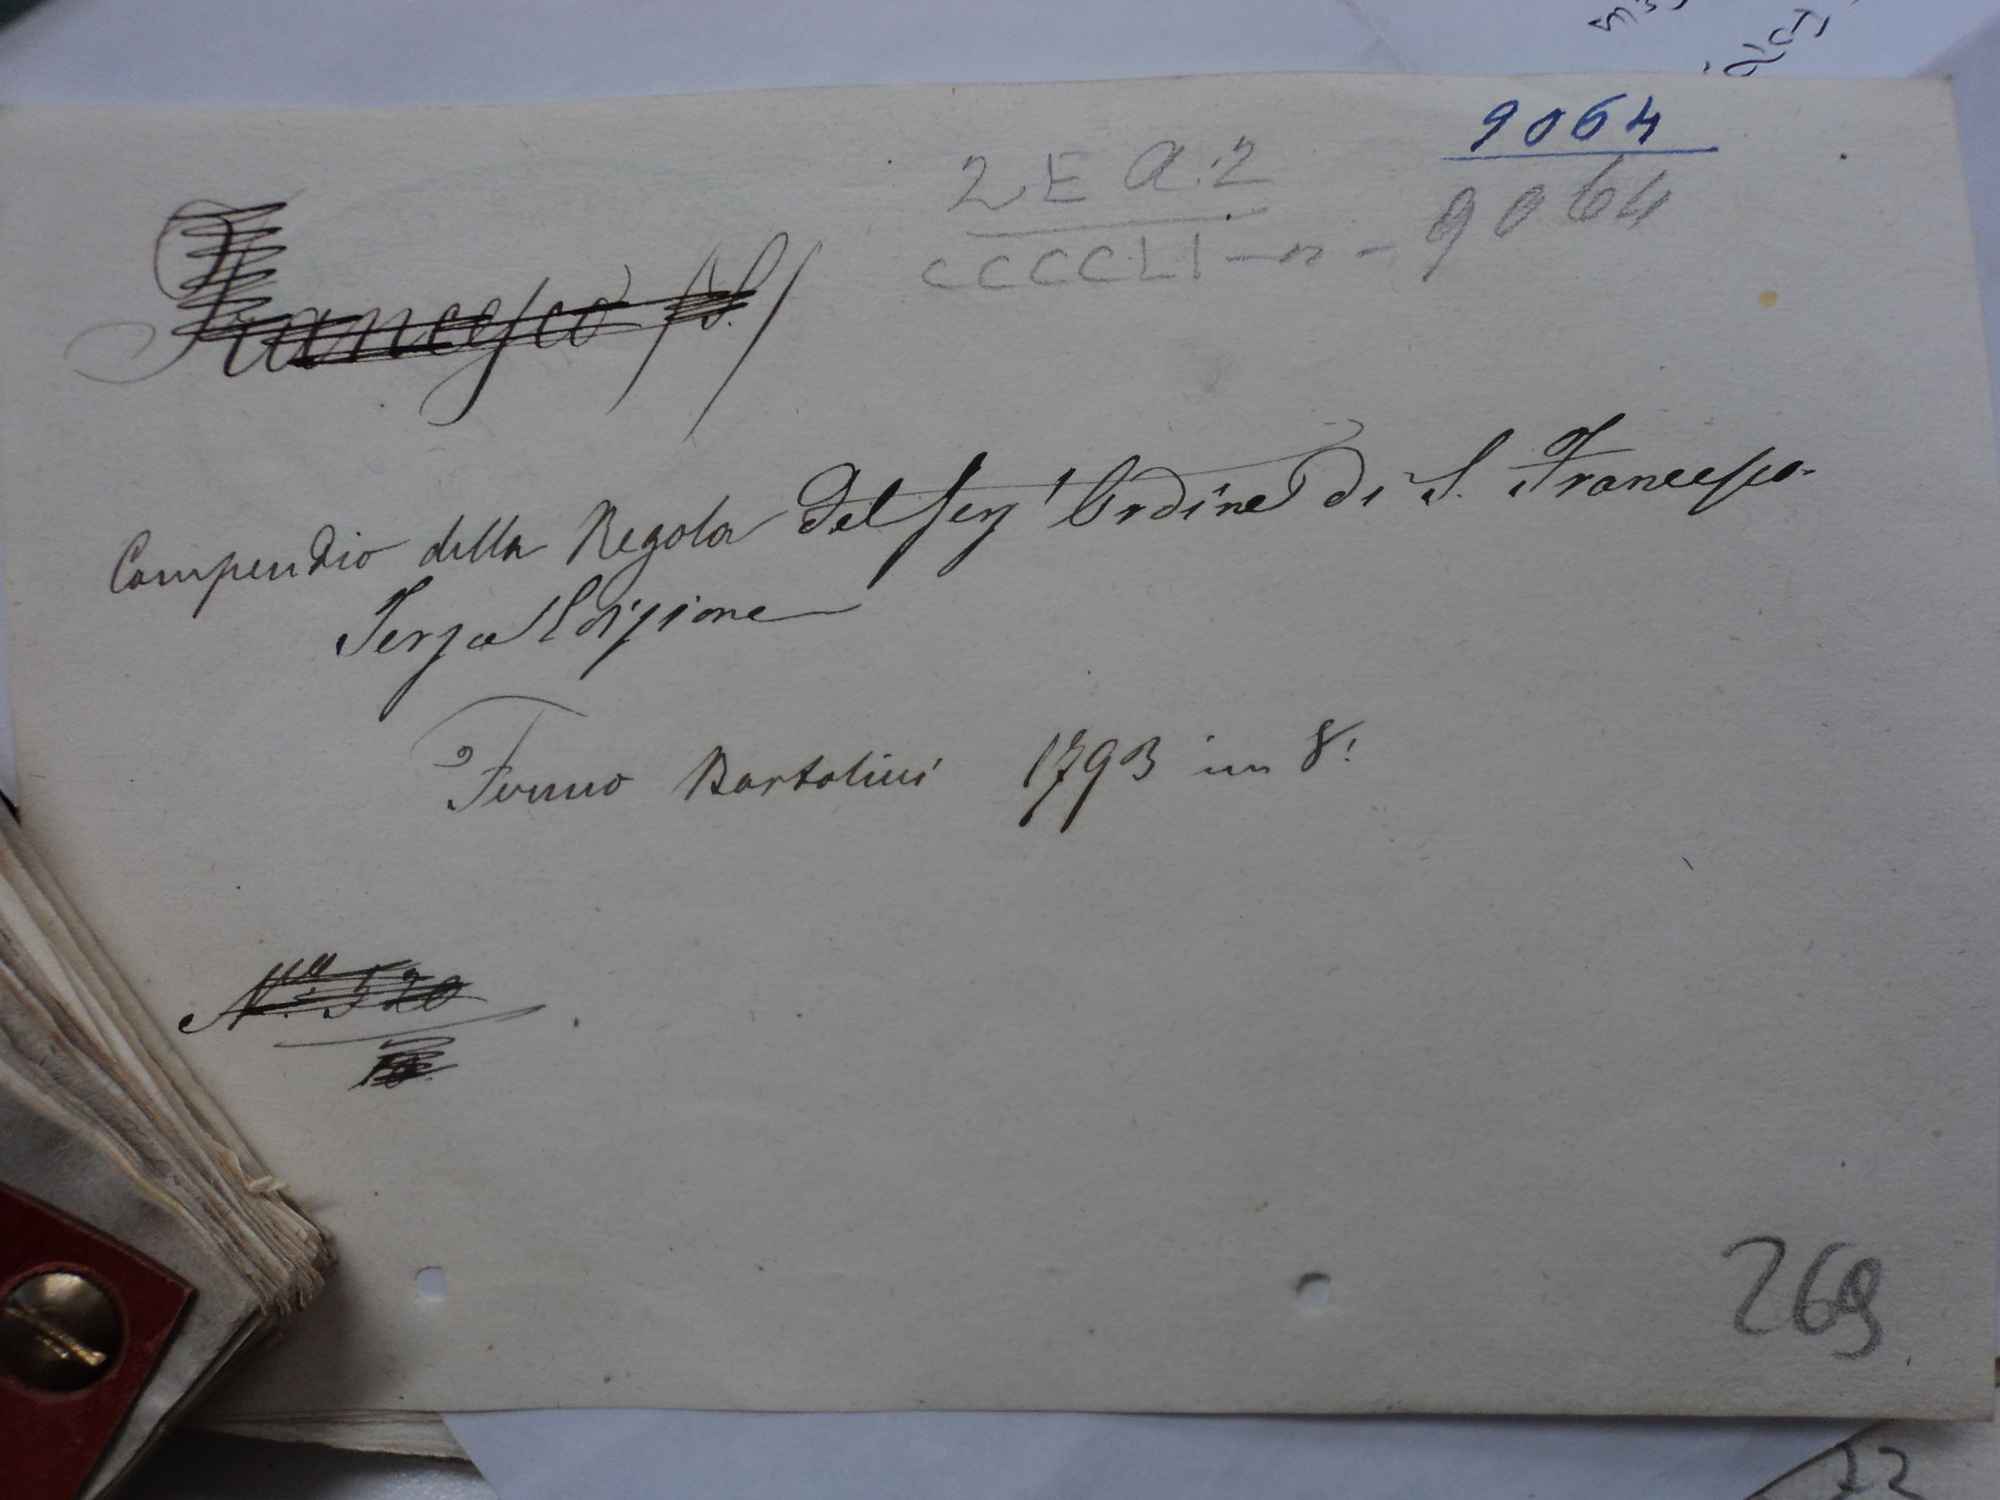 9064
2 E a. 2
CCCCLI - n - 9064
Francesco (S.)
Compendio della Regola del Terz' Ordine di S. Francesco.
Terza Edizione
Fermo Bartolini 1793 in 8.
N.° 520
269